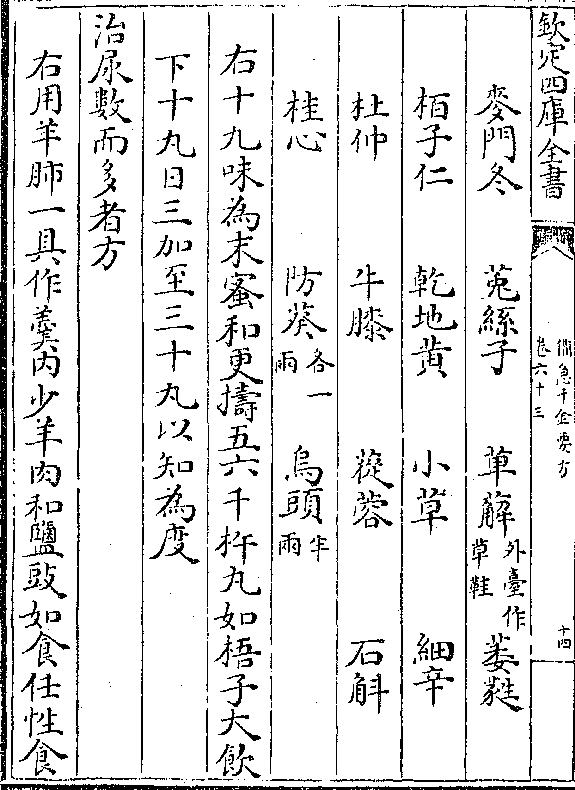 欽定四庫全書
備急千金要方
卷六十三
十四
麥門冬 菟絲子 萆薢外臺作草鞋 萎蕤
栢子仁 乾地黄 小草 細辛
杜仲 牛膝 蓯蓉 石斛
桂心 防葵各一兩 烏頭半兩
右十九味為末蜜和更擣五六千杵丸如梧子大飲
下十丸日三加至三十丸以知為度
治尿數而多者方
右用羊肺一具作羹内少羊肉和鹽豉如食任性食